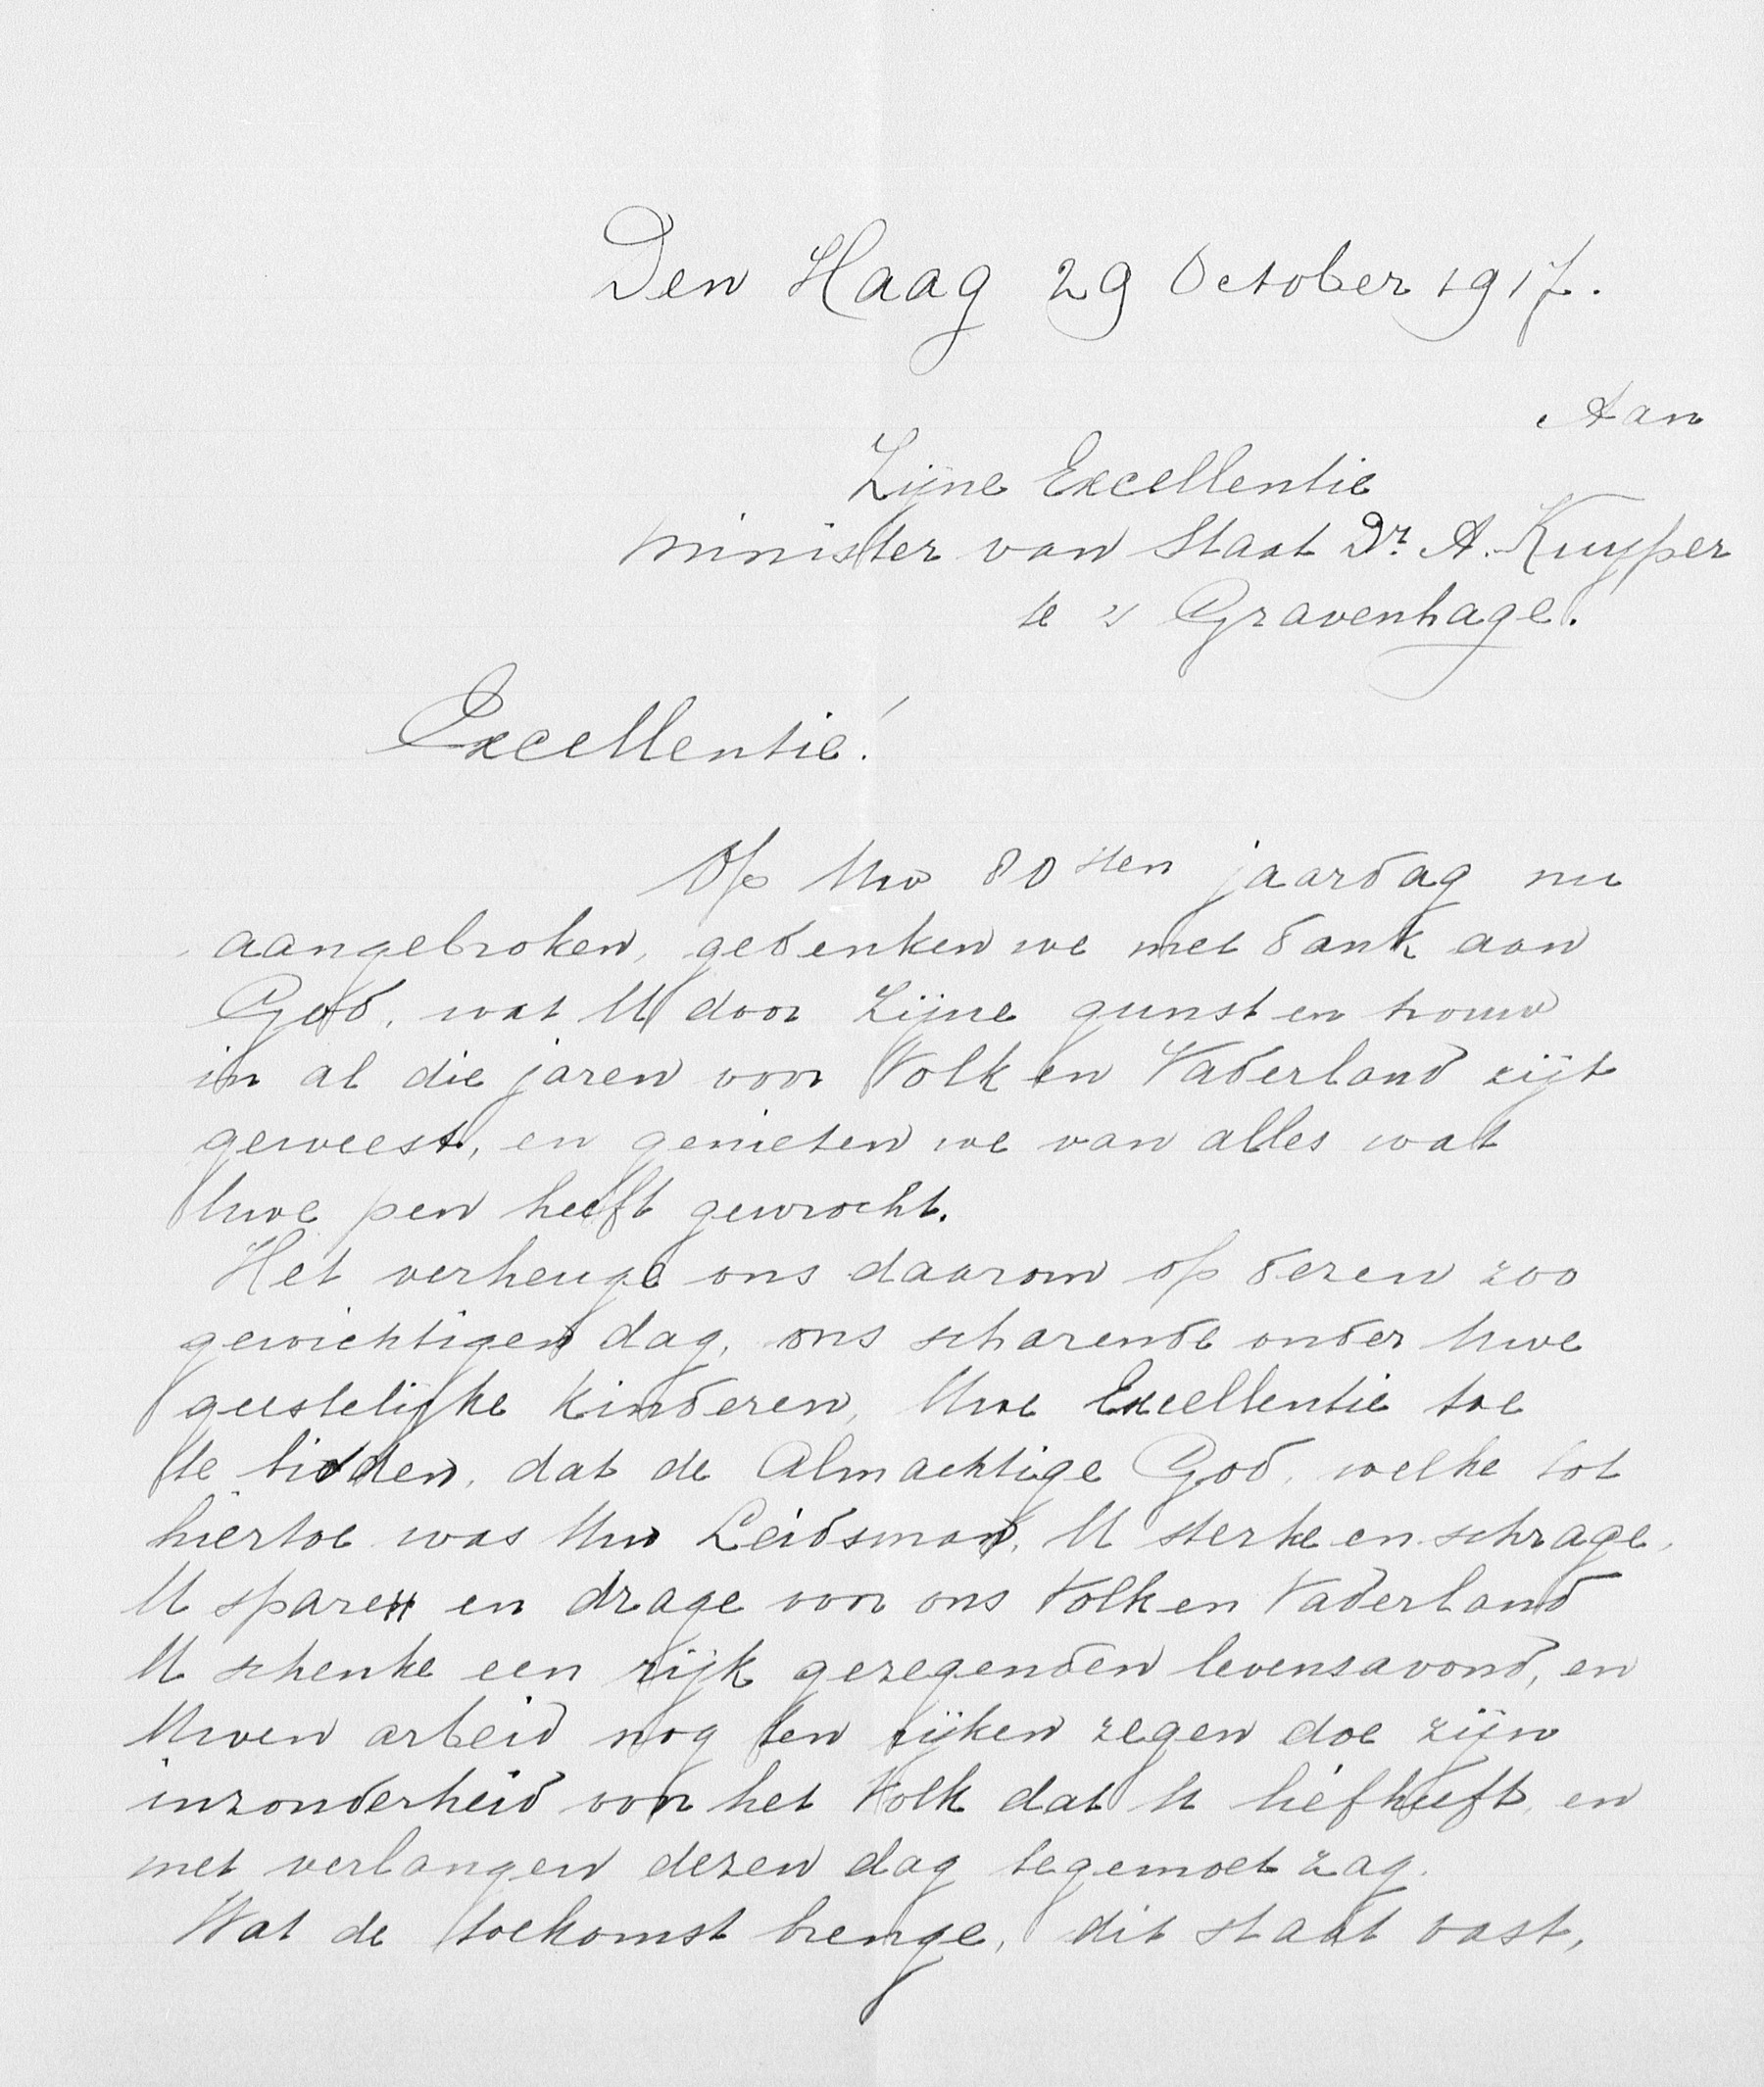 Den Haag 29 October 1917.
Aan
Zijne Excellentie
Minister van Staat Dr. A. Kuyper
te 's Gravenhage.
Excellentie!
Op Uw 80sten jaardag nu
aangebroken, gedenken we met dank aan
God, wat U door Zijne gunst en trouw
in al die jaren voor Volk en Vaderland zijt
geweest, en genieten we van alles wat
Uwe pen heeft gewrocht.
Het verheugd ons daarom op dezen zoo
gewichtigen dag, ons scharende onder Uwe
geestelijke kinderen, Uwe Excellentie toe
te bidden, dat de Almachtige God, welke tot
hiertoe was Uw Leidsman, U sterke en schrage,
U spare en drage voor ons Volk en Vaderland
U schenke een rijk gezegenden levensavond, en
Uwen arbeid nog ten rijken zegen doe zijn
inzonderheid voor het Volk dat U liefheeft, en
met verlangen dezen dag tegemoet zag.
Wat de toekomst brenge, dit staat vast,